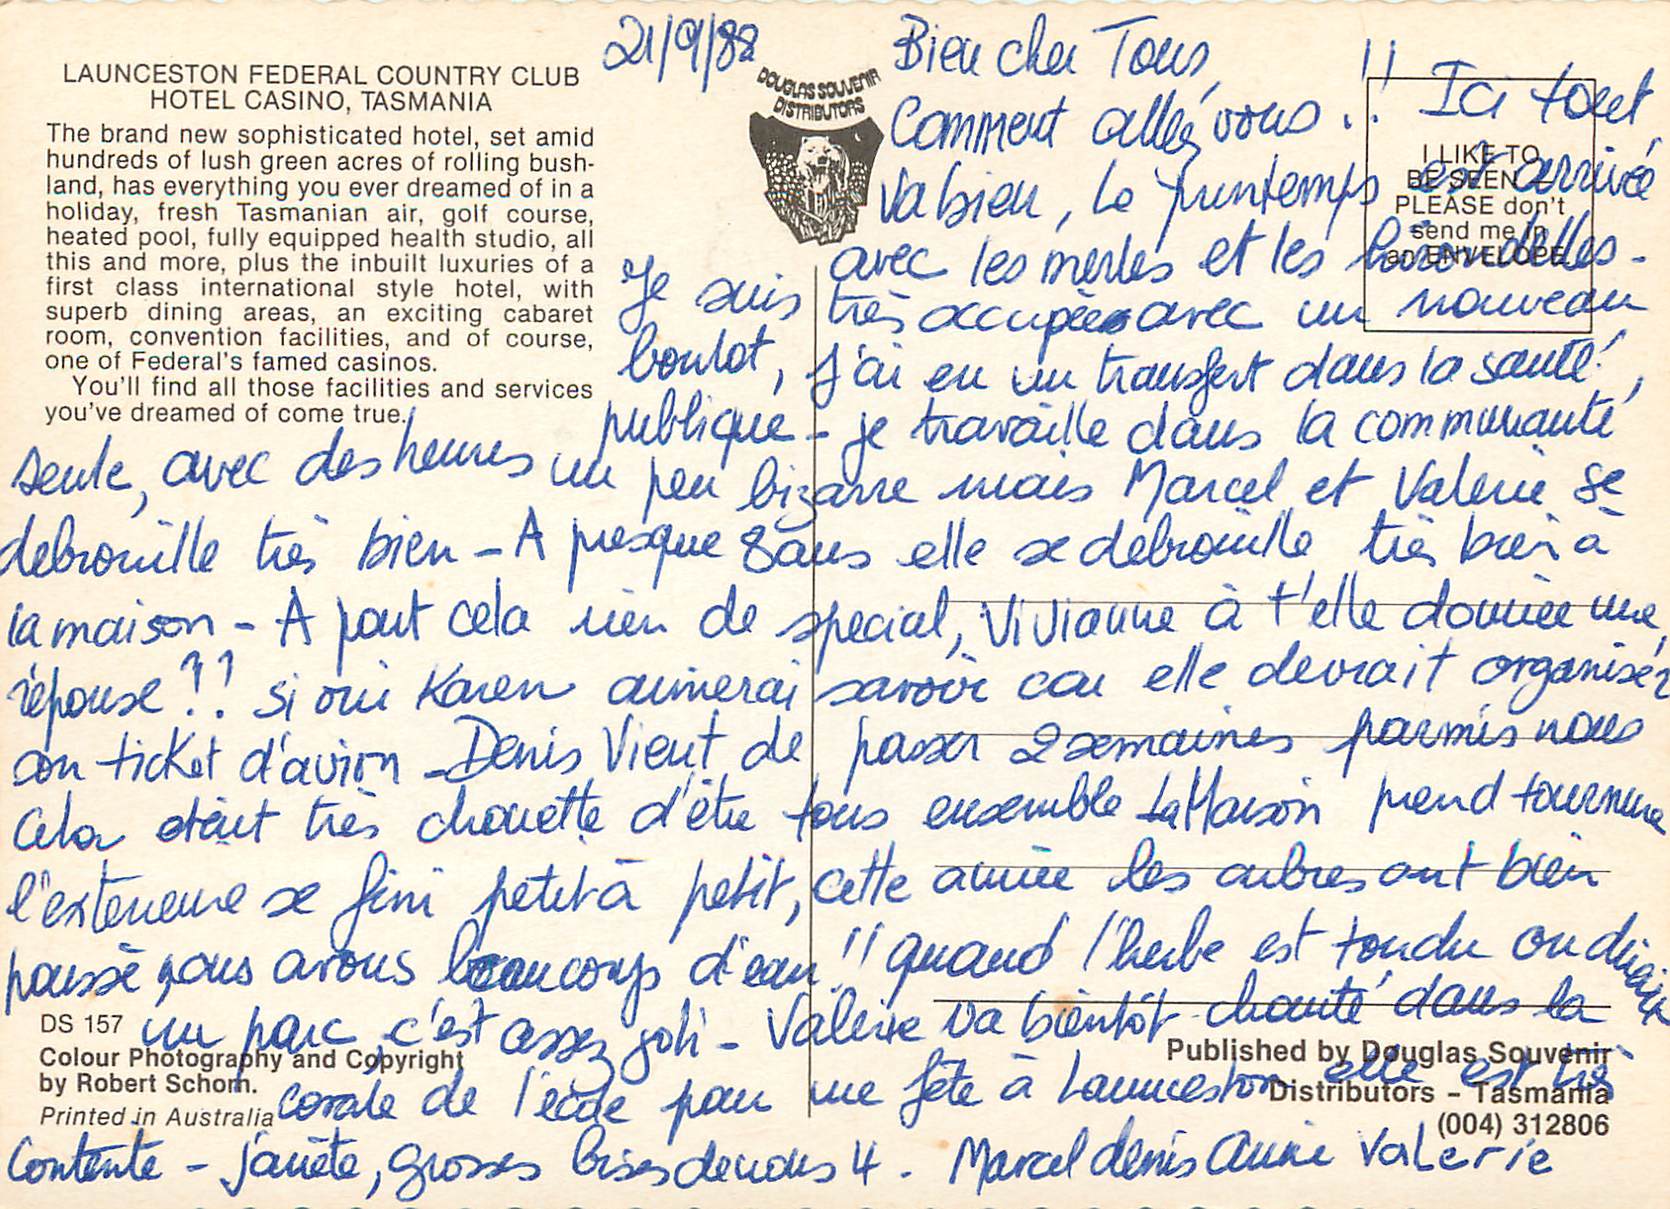 LAUNCESTON FEDERAL COUNTRY CLUB
HOTEL CASINO, TASMANIA
The brand new sophisticated hotel, set amid
hundreds of lush green acres of rolling bush-
land, has everything you ever dreamed of in a
holiday, fresh Tasmanian air, golf course,
heated pool, fully equipped health studio, all
this and more, plus the inbuilt luxuries of a
first class international style hotel, with
superb dining areas, an exciting cabaret
room, convention facilities, and of course,
one of Federal's famed casinos.
You'll find all those facilities and services
you've dreamed of come true.
DOUGLAS SOUVENIR
DISTRIBUTORS
I LIKE TO
BE SEEN
PLEASE don't
send me in
an ENVELOPE
21/9/88
Bien cher Tous,
Comment allez vous !! Ici tout
va bien, le printemps est arrivée
avec les merles et les hirondelles -
Je suis très occupée avec un nouveau
boulot, j'ai eu un transfert dans la santé
publique - je travaille dans la communauté
seule, avec des heures un peu bizarre mais Marcel et Valerie se
debrouille très bien - A presque 8 ans elle se debrouille très bien à
la maison - A part cela rien de special, Vivianne à t'elle donnée une
réponse ?? si oui Karen aimerai savoir car elle devrait organiser
son ticket d'avion - Denis vient de passer 2 semaines parmis nous
Cela etait très chouette d'être tous ensemble La Maison prend tournure
l'exterieure se fini petit à petit, cette année les arbres ont bien
poussé, nous avons beaucoup d'eau !! quand l'herbe est tondu on dirait
un parc, c'est assez joli - Valerie va bientôt chanté dans la
corale de l'école pour une fête à Launceston elle est très
contente - j'arrête, grosses bises de nous 4. Marcel denis Annie Valerie
DS 157
Colour Photography and Copyright
by Robert Schorn.
Printed in Australia
Published by Douglas Souvenir
Distributors – Tasmania
(004) 312806